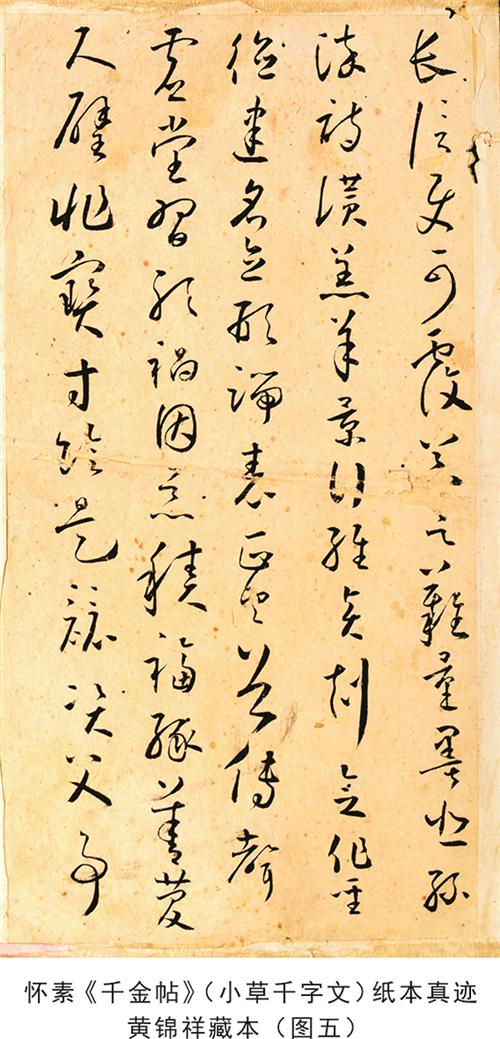 長信使可覆器欲難量墨悲絲
染詩讚羔羊景行維賢剋念作聖
德建名立形端表正空谷傳聲
虛堂習聽禍因惡積福緣善慶
尺璧非寶寸陰是競資父事
怀素《千金帖》（小草千字文）纸本真迹
黄锦祥藏本（图五）